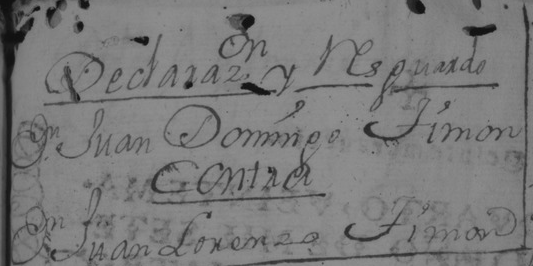 Declaraz.on y Resguardo
Dn Juan Domingo Simon
Contra
Dn Juan Lorenzo Simon